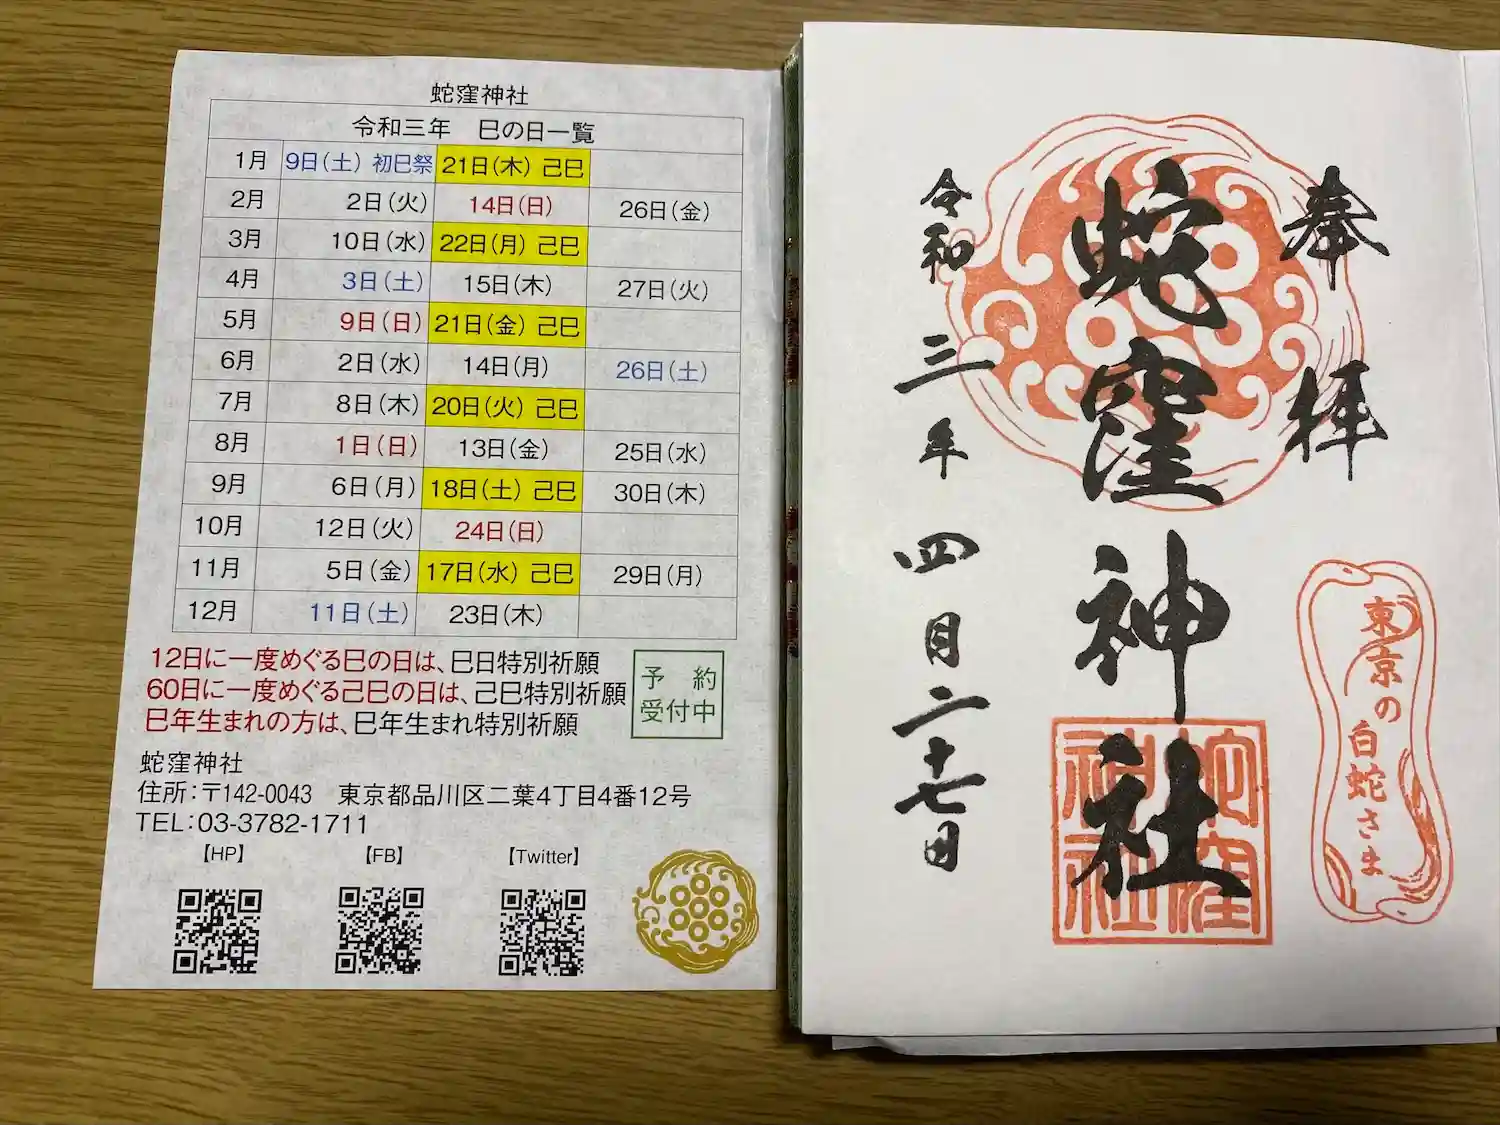 蛇窪神社
令和三年 巳の日一覧
1月 9日(土) 初巳祭 21日(木) 己巳
2月 2日(火) 14日(日) 26日(金)
3月 10日(水) 22日(月) 己巳
4月 3日(土) 15日(木) 27日(火)
5月 9日(日) 21日(金) 己巳
6月 2日(水) 14日(月) 26日(土)
7月 8日(木) 20日(火) 己巳
8月 1日(日) 13日(金) 25日(水)
9月 6日(月) 18日(土) 己巳 30日(木)
10月 12日(火) 24日(日)
11月 5日(金) 17日(水) 己巳 29日(月)
12月 11日(土) 23日(木)
12日に一度めぐる巳の日は、巳日特別祈願
60日に一度めぐる己巳の日は、己巳特別祈願
巳年生まれの方は、巳年生まれ特別祈願
予約
受付中
蛇窪神社
住所:〒142-0043 東京都品川区二葉4丁目4番12号
TEL:03-3782-1711
【HP】 【FB】 【Twitter】
奉拝
蛇窪神社
令和三年四月二十七日
蛇窪神社
東京の
白蛇さま